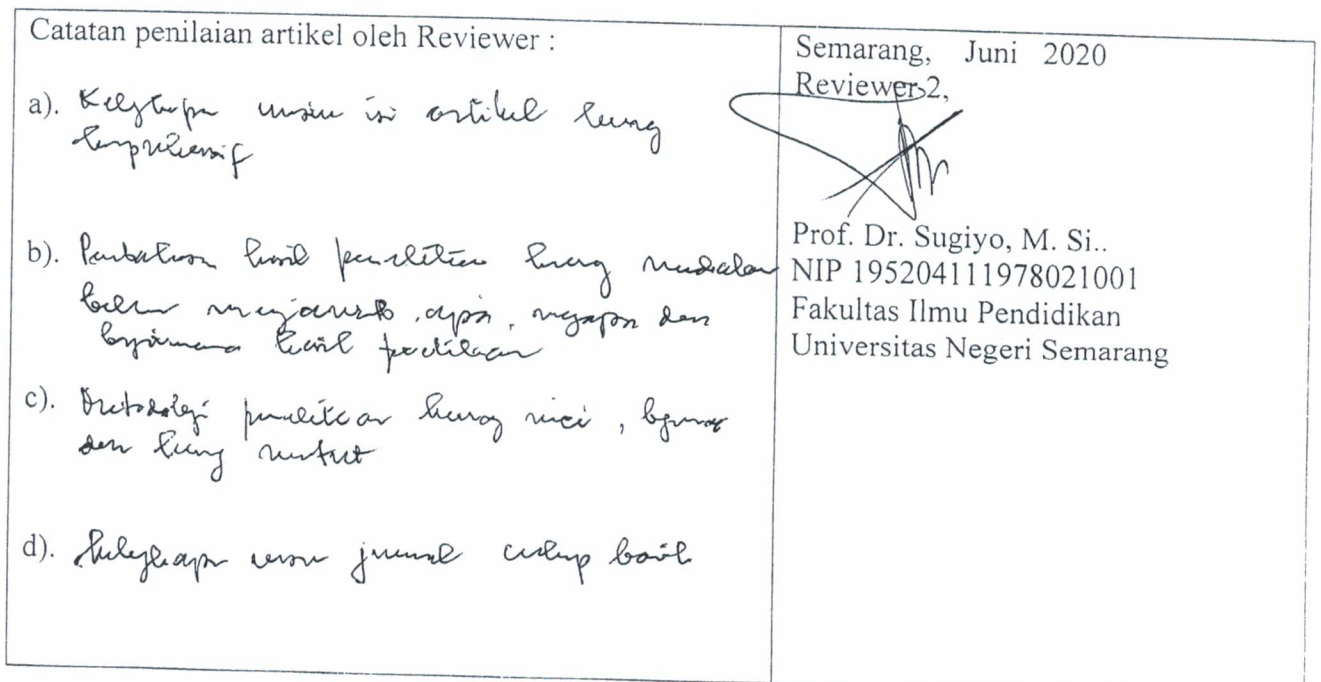 Catatan penilaian artikel oleh Reviewer :
a). Kelengkapan unsur isi artikel kurang
komprehensif
b). Pembahasan hasil penelitian kurang mendalam
belum menjawab apa, mengapa dan
bagaimana hasil penelitian
c). Metodologi penelitian kurang rinci,
dan kurang
d). Kelengkapan unsur jurnal cukup baik
Semarang, Juni 2020
Reviewer 2,
Prof. Dr. Sugiyo, M. Si..
NIP 195204111978021001
Fakultas Ilmu Pendidikan
Universitas Negeri Semarang